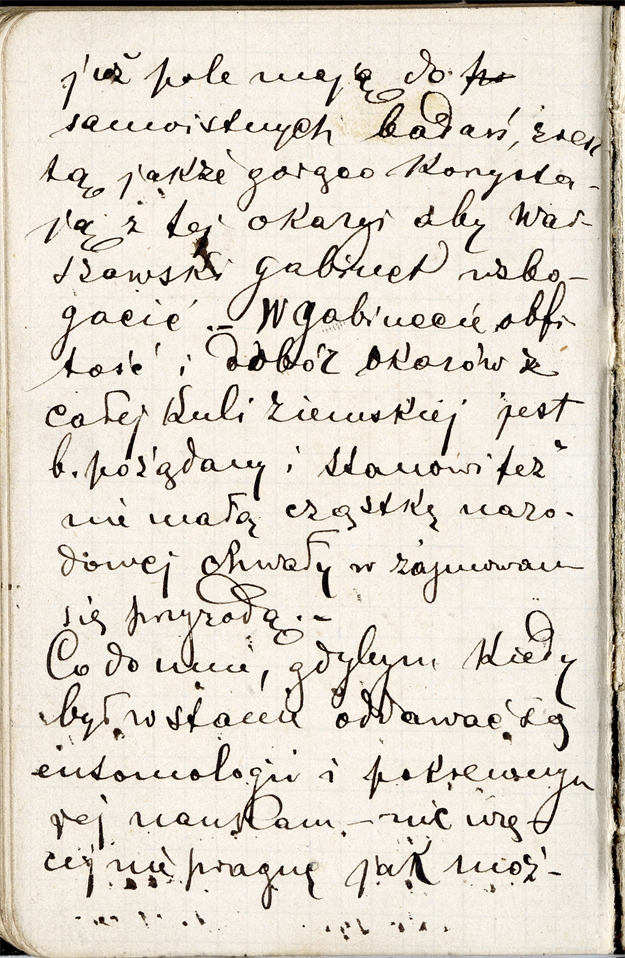 już pole mają do po
samoistnych badań, zresz
tą jakże gorąco korzysta-
ją z tej okazyi aby War-
szawski gabinet wzbo-
gacić – W gabinecie obfi
tość i dobór okazów z
całej kuli ziemskiej jest
b. pożądany i stanowi też
nie małą cząstkę naro-
dowej chwały w zajmowan
się przyrodą. –
Co do mnie, gdybym kiedy
był w stanie oddawać się
entomologii i pokrewnym
jej naukom – nic wię-
cej nie pragnę jak moż-